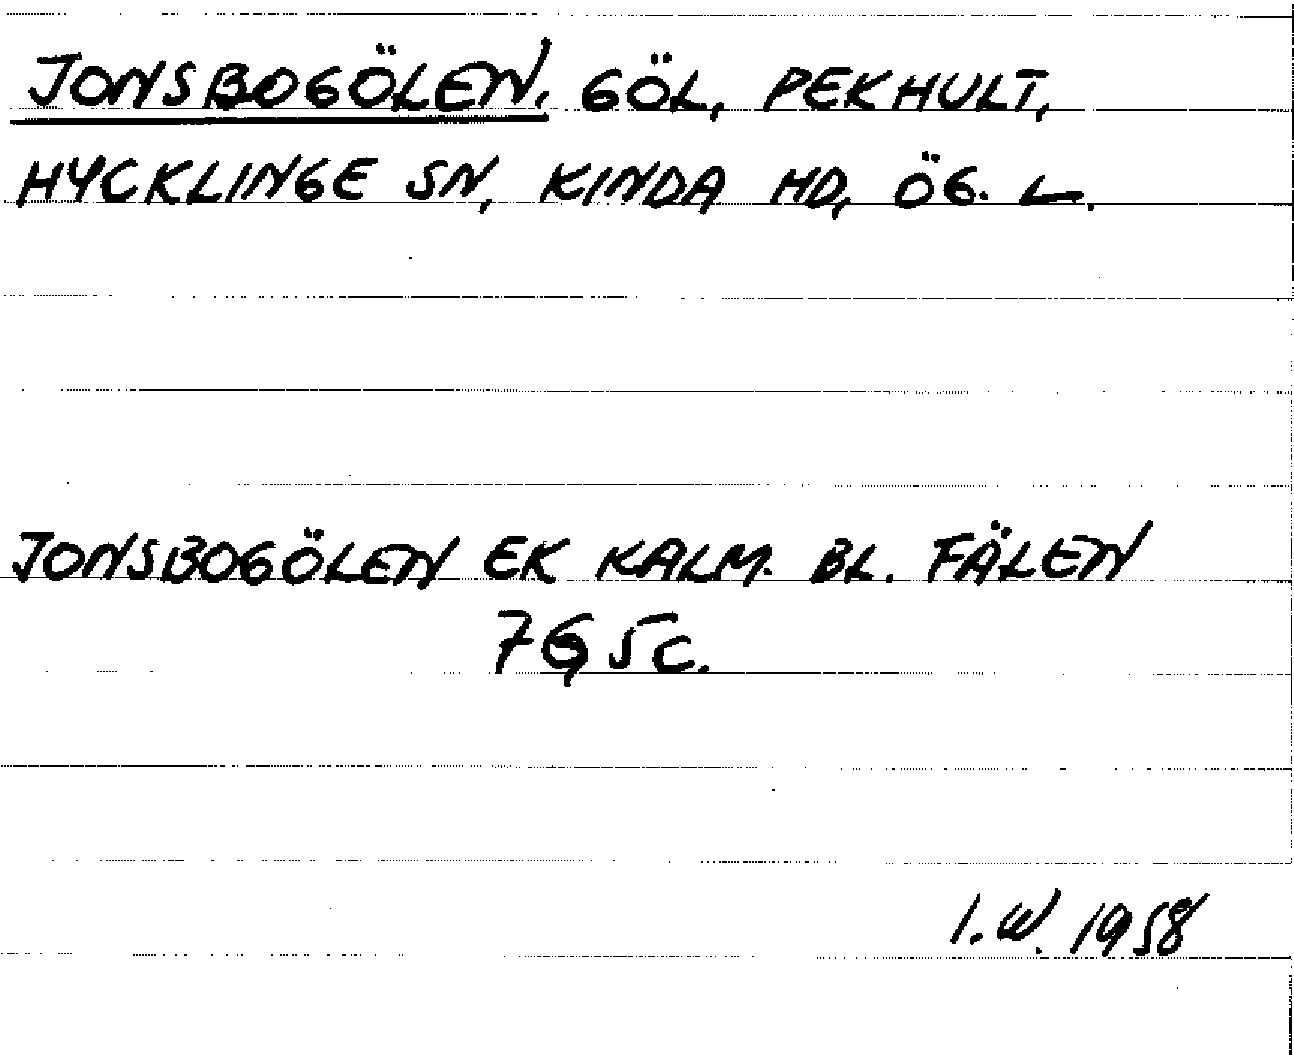 JONSBOGÖLEN, GÖL, PEKHULT,
HYCKLINGE SN, KINDA HD, ÖG. L.
JONSBOGÖLEN EK KALM. BL. FÅLEN
7G5C.
I.W. 1958